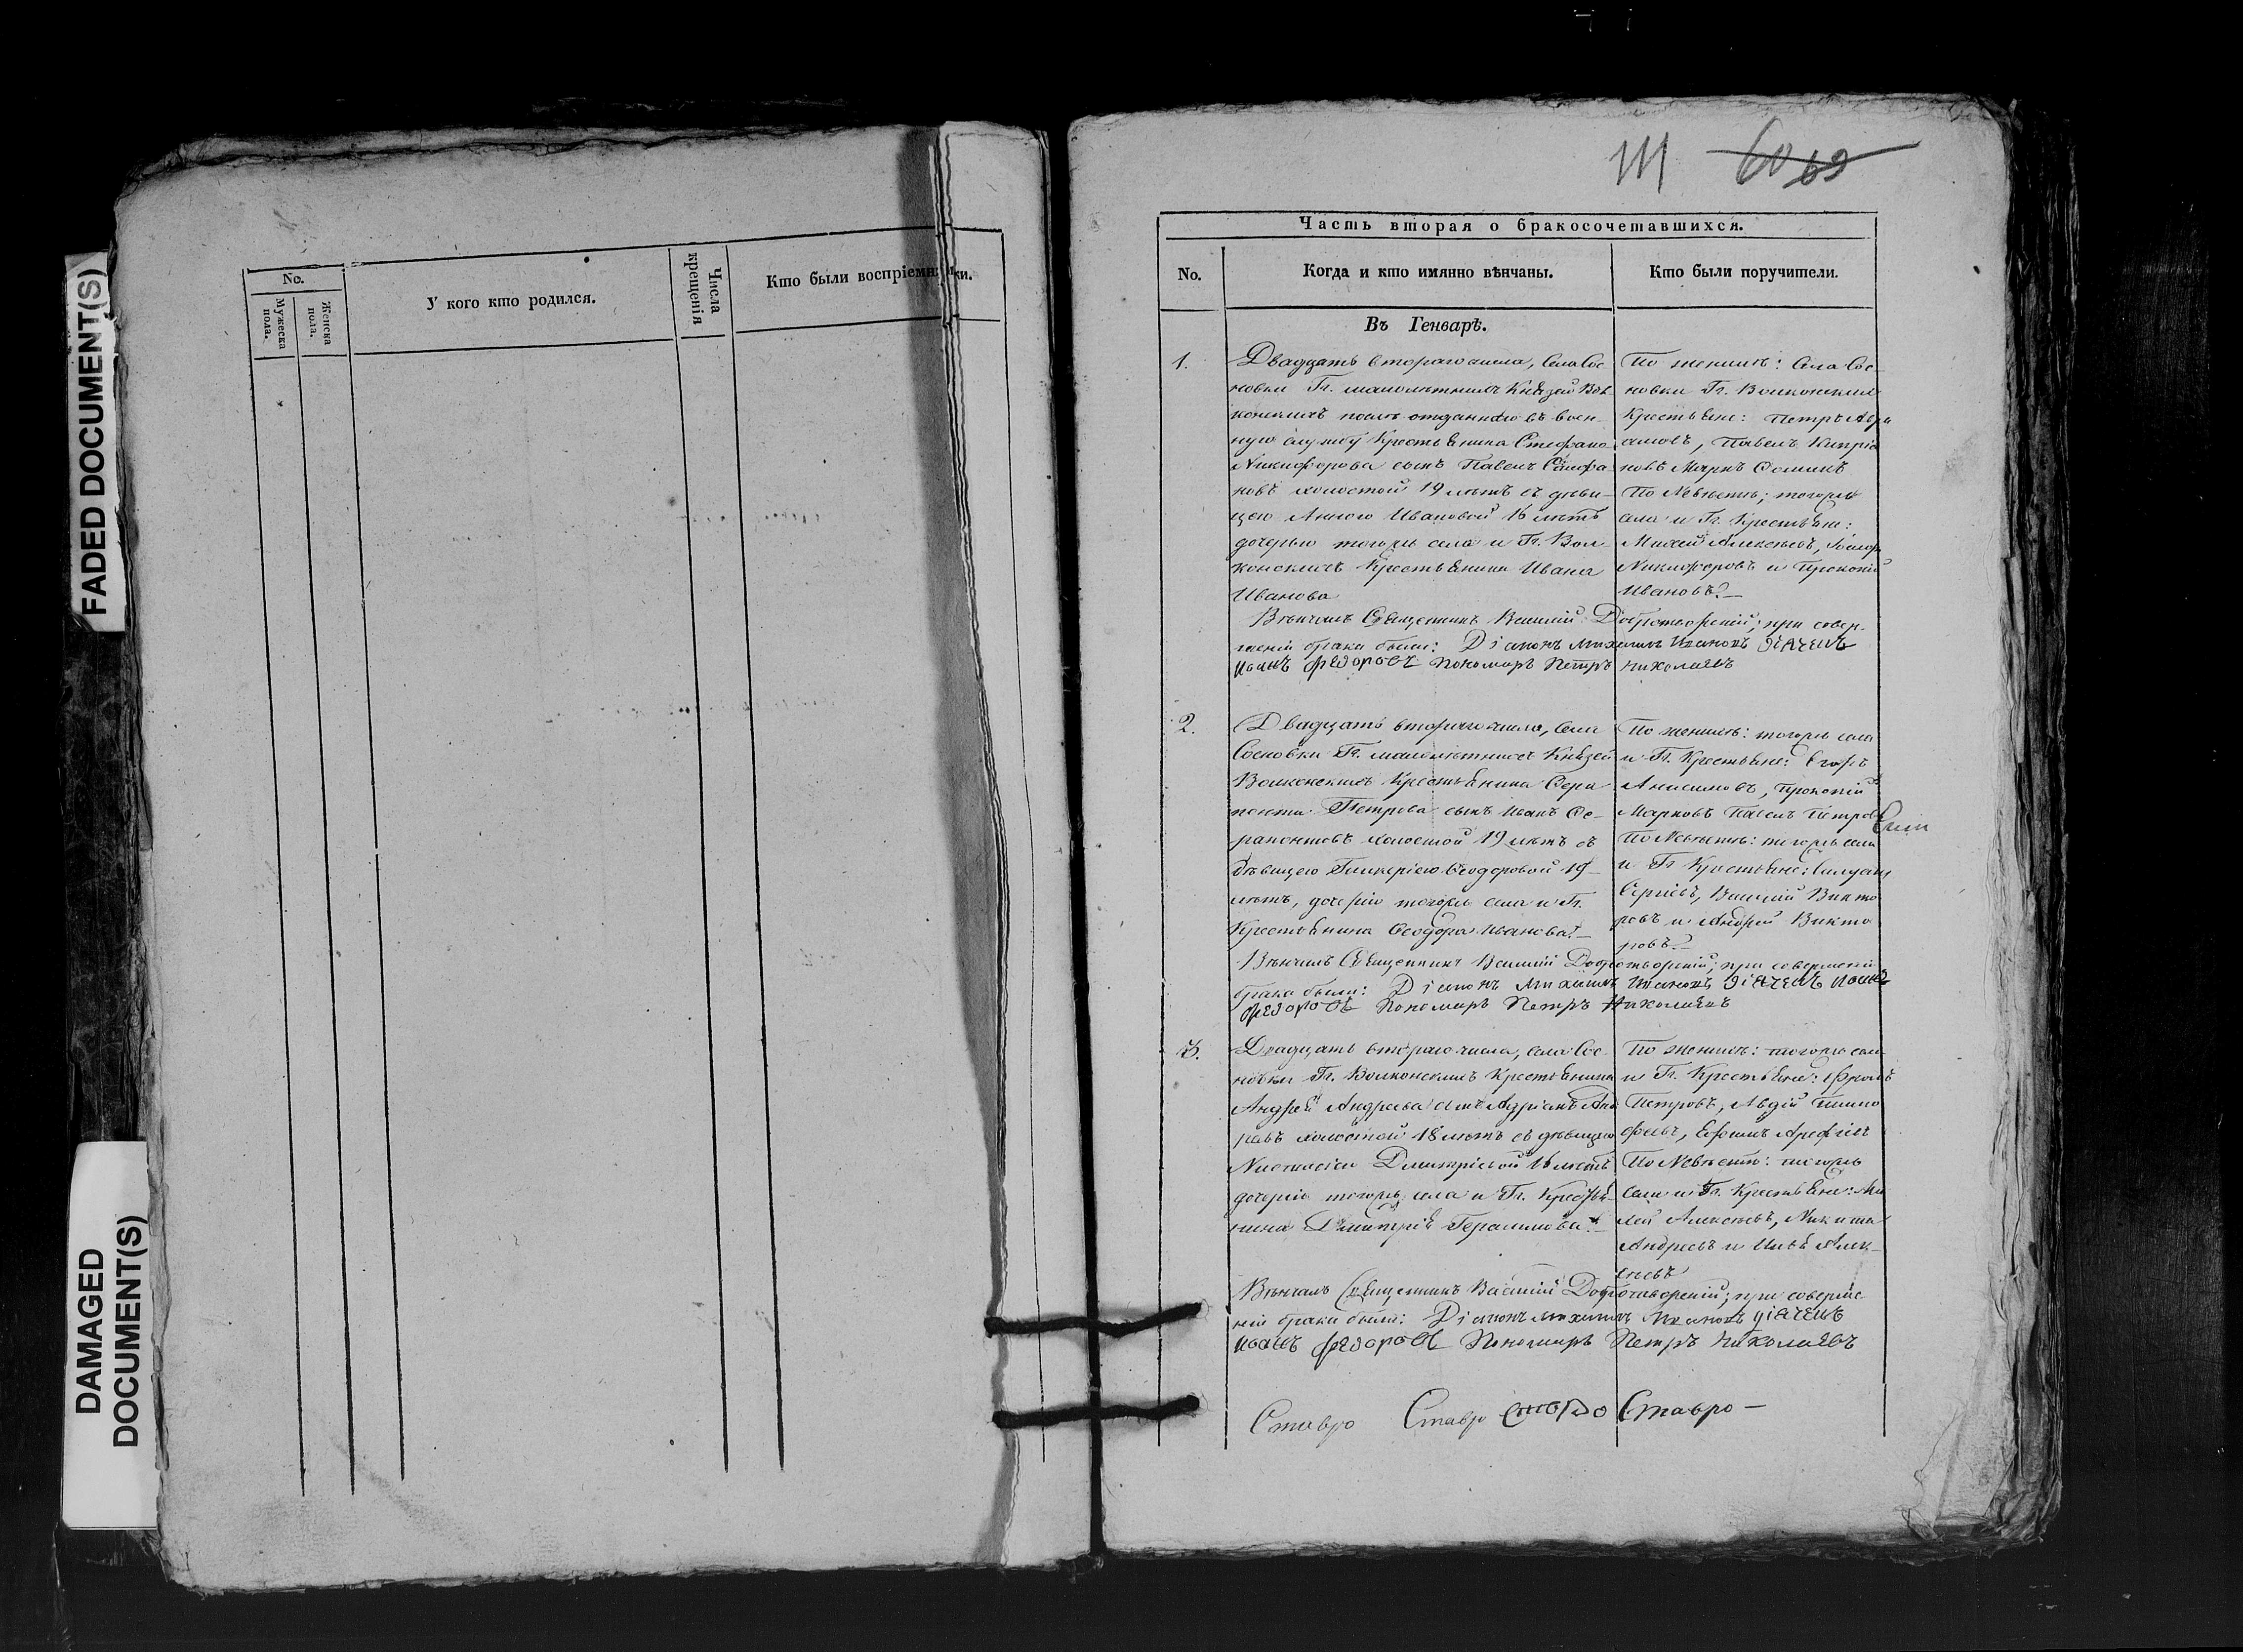 FADED DOCUMENT(S)
DAMAGED
DOCUMENT(S)
No.
Мужеска
пола.
Женска
пола.
У кого кто родился.
Числа
крещенія
Кто были воспріемники.
111 60 69
Часть вторая о бракосочетавшихся.
No.
Когда и кто имянно вѣнчаны.
Кто были поручители.
Въ Генварѣ.
1.
Двадцать втораго числа, Села Сос
новки Гг. малолѣтнихъ Князей Вол
конскихъ отданнаго въ воен
ную службу Крестьянина Стефана
Никифорова сынъ Павелъ Стефа
новъ холостой 19 лѣтъ съ дѣви
цею Анною Ивановой 16 лѣтъ
дочерью тогожъ села и Гг. Вол
конскихъ Крестьянина Ивана
Иванова
По женихѣ: Села Сос
новки Гг. Волконскихъ
Крестьяне: Петръ Авра
амовъ, Павелъ Кипріа
новъ Маркъ
По Невѣстѣ; тогожъ
села и Гг. Крестьяне:
Михей Алексѣевъ,
Никифоровъ и Прокопій
Ивановъ.
Вѣнчалъ Священникъ Василій Добротворскій; при совер
шеніи брака были: Діаконъ Михаилъ Ивановъ діячекъ
Иоанъ Федоровъ Пономарь Петръ Николаевъ
2.
Двадцать втораго числа, Села
Сосновки Гг. малолѣтнихъ Князей
Волконскихъ Крестьянина Сера
понта Петрова сынъ Иванъ Се
рапонтовъ холостой 19 лѣтъ съ
дѣвицею Гликеріею Ѳеодоровой 19
лѣтъ, дочерію тогожъ села и Гг.
Крестьянина Ѳеодора Иванова.
По женихѣ: тогожъ села
и Гг. Крестьяне: Егоръ
Анисимовъ, Прокопій
Марковъ Павелъ Петровъ
По Невѣстѣ: тогожъ села
и Гг. Крестьяне:
Сергіевъ, Василій Викто
ровъ и Андрей Викто
ровъ.
Вѣнчалъ Священникъ Василій Добротворскій; при совершеніи
брака были: Діаконъ Михаилъ Ивановъ діячекъ Иоанъ
Федоровъ Пономарь Петръ Николаевъ
3.
Двадцать втораго числа, села Сос
новки Гг. Волконскихъ Крестьянина
Андрея Андреева сынъ Адріанъ Анд
ревъ холостой 18 лѣтъ съ дѣвицею
Настасіею Дмитріевой 16 лѣтъ
дочерію тогожъ села и Гг. Крестья
нина Дмитрія Герасимова.
По женихѣ: тогожъ села
и Гг. Крестьяне: Фролъ
Петровъ, Авдій Тимо
феевъ, Ефимъ Арефьевъ
По Невѣстѣ: тогожъ
села и Гг. Крестьяне: Ми
хей Алексѣевъ, Никита
Андреевъ и Илья Алек
сѣевъ
Вѣнчалъ Священникъ Василій Добротворскій; при соверше
ніи брака были: Діаконъ Михаилъ Ивановъ діячекъ
Иоанъ Федоровъ Пономарь Петръ Николаевъ
Ставро Ставро Ставро Ставро